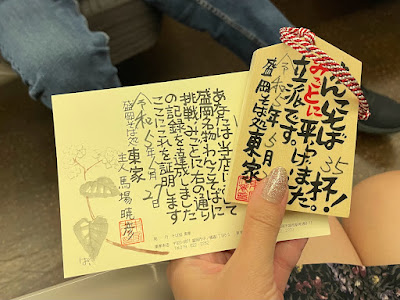 んこそば 35杯!
みごとに平らげました。
立派です。
令和5年5月
盛岡そば処 東家
あなたは当店に
盛岡名物わんこそばに
挑戦、みごとに右の通り
の記録を達成しました
ここにこれを証明します
令和5年5月21日
盛岡そば処 東家
主人 馬場 暁彦